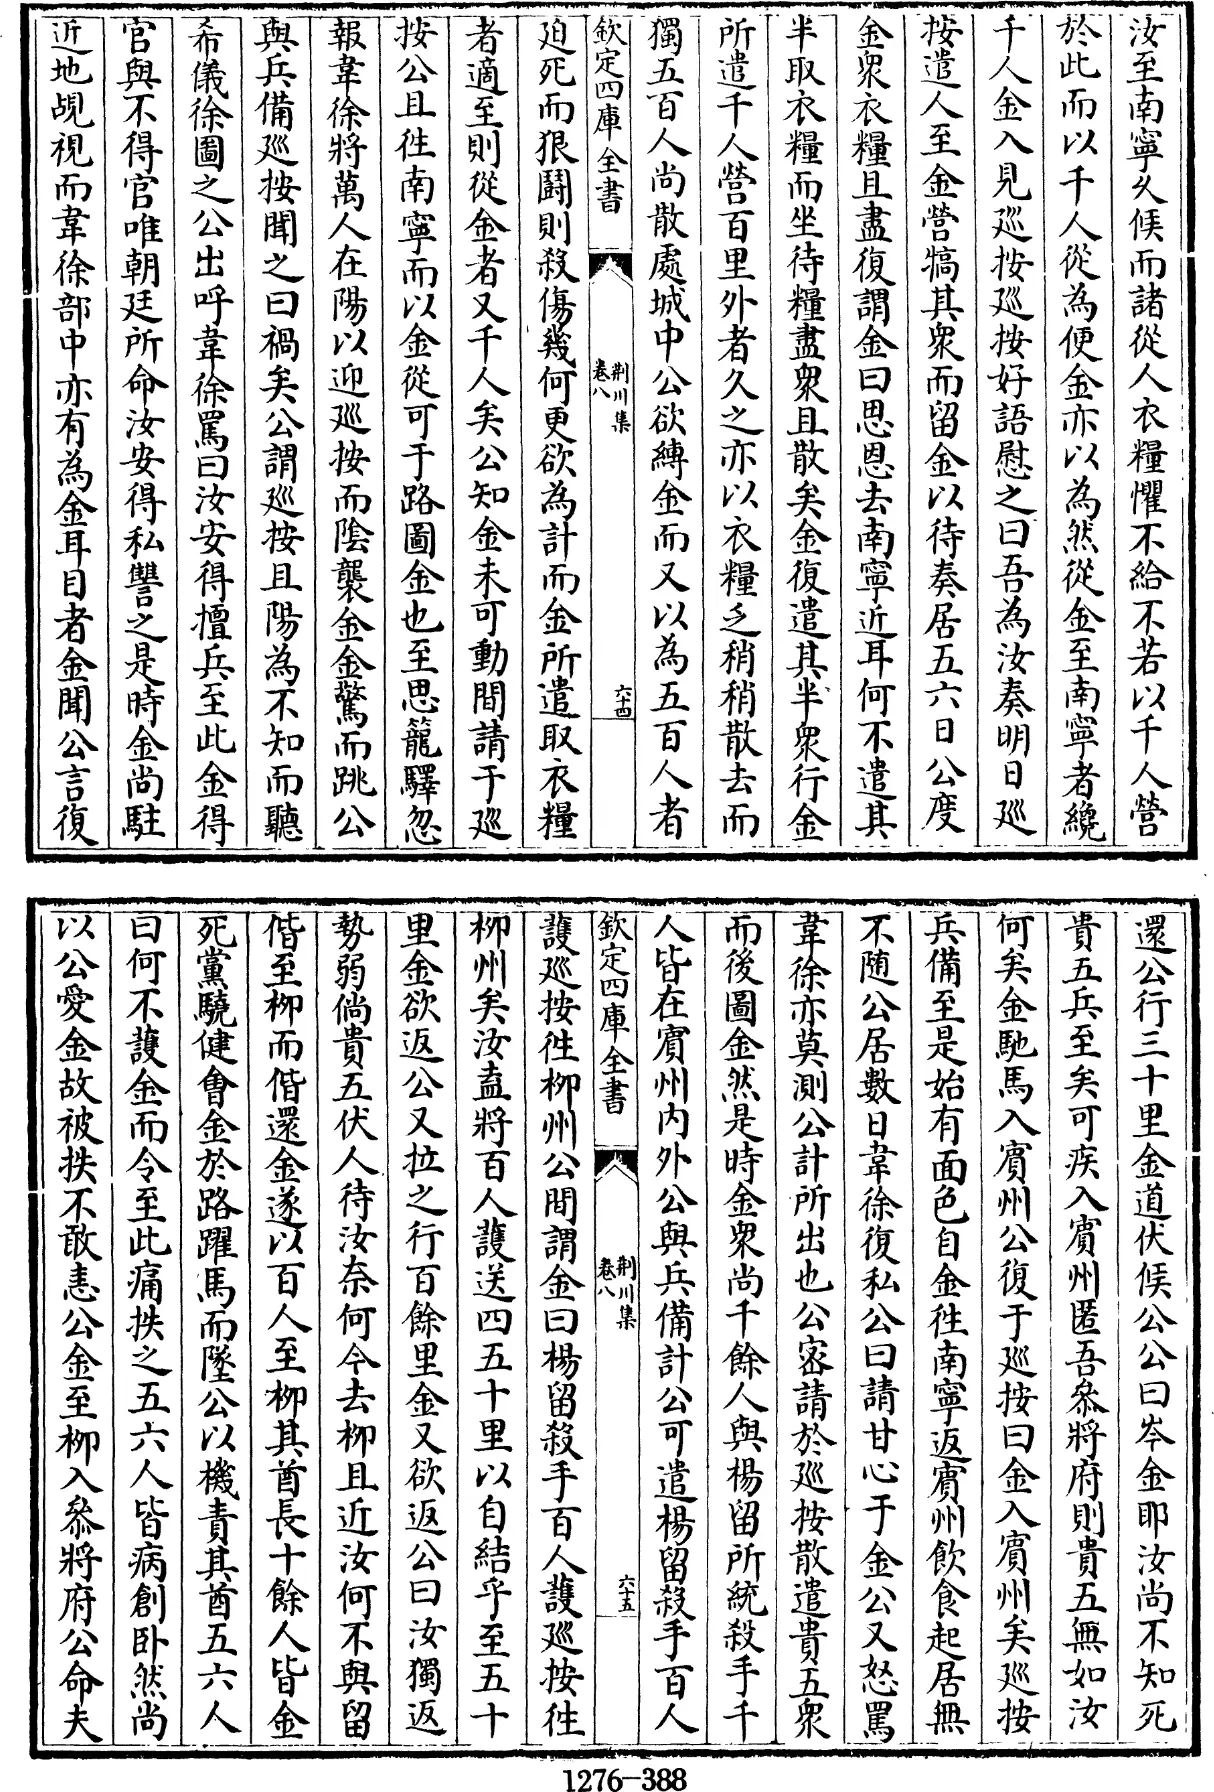 汝至南寧久候而諸從人衣糧懼不給不若以千人營
於此而以千人從為便金亦以為然從金至南寧者纔
千人金入見巡按巡按好語慰之曰吾為汝奏明日巡
按遣人至金營犒其衆而留金以待奏居五六日公度
金衆衣糧且盡復謂金曰思恩去南寧近耳何不遣其
半取衣糧而坐待糧盡衆且散矣金復遣其半衆行金
所遣千人營百里外者久之亦以衣糧乏稍稍散去而
獨五百人尚散處城中公欲縛金而又以為五百人者
欽定四庫全書
荆川集
卷八
六十四
廹死而狠鬭則殺傷幾何更欲為計而金所遣取衣糧
者適至則從金者又千人矣公知金未可動間請于巡
按公且徃南寧而以金從可于路圖金也至思籠驛忽
報韋徐將萬人在陽以迎巡按而陰襲金金驚而跳公
與兵備巡按聞之曰禍矣公謂巡按且陽為不知而聽
希儀徐圖之公出呼韋徐罵曰汝安得擅兵至此金得
官與不得官唯朝廷所命汝安得私讐之是時金尚駐
近地覘視而韋徐部中亦有為金耳目者金聞公言復
還公行三十里金道伏候公公曰岑金耶汝尚不知死
貴五兵至矣可疾入賓州匿吾叅將府則貴五無如汝
何矣金馳馬入賓州公復于巡按曰金入賓州矣巡按
兵備至是始有面色自金徃南寧返賓州飲食起居無
不随公居數日韋徐復私公曰請甘心于金公又怒罵
韋徐亦莫測公計所出也公宻請於巡按散遣貴五衆
而後圖金然是時金衆尚千餘人與楊留所統殺手千
人皆在賓州内外公與兵備計公可遣楊留殺手百人
欽定四庫全書
荆川集
卷八
六十五
護巡按徃柳州公間謂金曰楊留殺手百人護巡按徃
柳州矣汝盍將百人護送四五十里以自結乎至五十
里金欲返公又拉之行百餘里金又欲返公曰汝獨返
勢弱倘貴五伏人待汝奈何今去柳且近汝何不與留
偕至柳而偕還金遂以百人至柳其酋長十餘人皆金
死黨驍健會金於路躍馬而墜公以機責其酋五六人
曰何不護金而令至此痛抶之五六人皆病創卧然尚
以公愛金故被抶不敢恚公金至柳入叅將府公命夫
1276-388